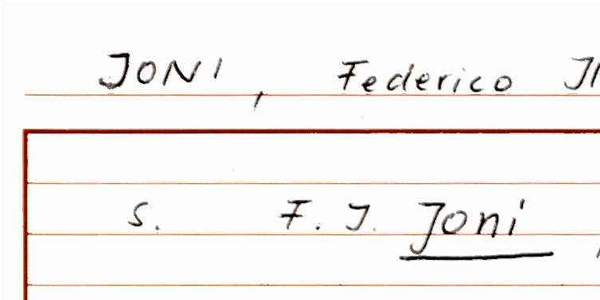 JONI, Federico
s. F. J. Joni